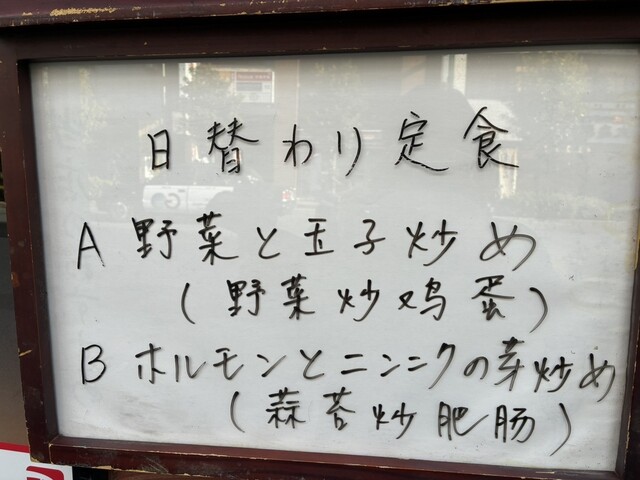 日替わり定食
A 野菜と玉子炒め
(野菜炒鸡蛋)
B ホルモンとニンニクの芽炒め
(蒜苔炒肥肠)